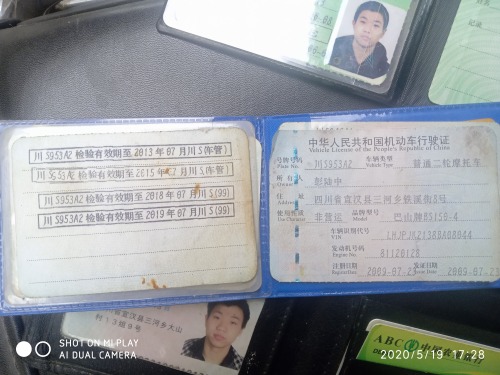 川S953A2 检验有效期至 2013年 07月川 S(作管)
川S953A2 检验有效期至 2015年 07月川 S(作管)
川S953A2 检验有效期至 2018年 07月川 S(99)
川S953A2 检验有效期至 2019年 07月川 S(99)
中华人民共和国机动车行驶证
Vehicle License of the People's Republic of China
号牌号码 川S953A2 车辆类型 普通二轮摩托车
Plate No. Vehicle Type
所有人 彭陆中
Owner
住址 四川省宣汉县三河乡铁溪街8号
Address
使用性质 非营运 品牌型号 巴山牌BS150-4
Use Character Model
车辆识别代号
VIN
发动机号码 81120128
Engine No.
注册日期 2009-07-23 发证日期 2009-07-23
Register Date Issue Date
宣汉县三河乡大山
村13组9号
ABC
SHOT ON MI PLAY
AI DUAL CAMERA
2020/5/19 17:28